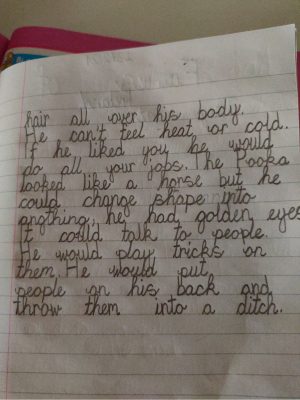 hair all over his body.
He can't feel heat, or cold.
If he liked you he would
do all your jobs. The Pooka
looked like a horse but he
could change shape into
angthing, he had golden eyes
It could talk to people.
He would play tricks on
them. He would put
people on his back and
throw them into a ditch.